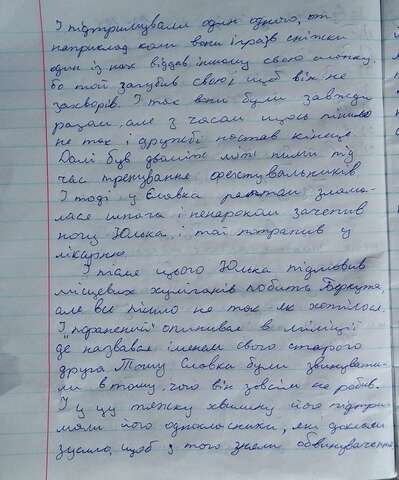 І підтримували один одного, от
наприклад коли вони іграв сніжки
один із них віддав іншому свою шапку,
бо той загубив свою, щоб він не
захворів. І так вони були завжди
разом, але з часом щось пішло
не так і дружбі настав кінець.
Далі був двобій між ними під
час тренування фехтувальників
І тоді у Славка раптом злама-
лася шпага і ненароком зачепив
ногу Юлька, і той потрапив у
лікарню.
І після цього Юлька підмовив
місцевих хуліганів побити Беркута,
але все пішло не так як хотілося.
І "поранений" опинився в міліції
де назвався іменем свого старого
друга. Тому Славка були звинувати-
ли в тому, чого він зовсім не робив.
І у цю тяжку хвилину його підтри-
мали його однокласники, які доклали
зусиль, щоб з того зняли обвинувачення